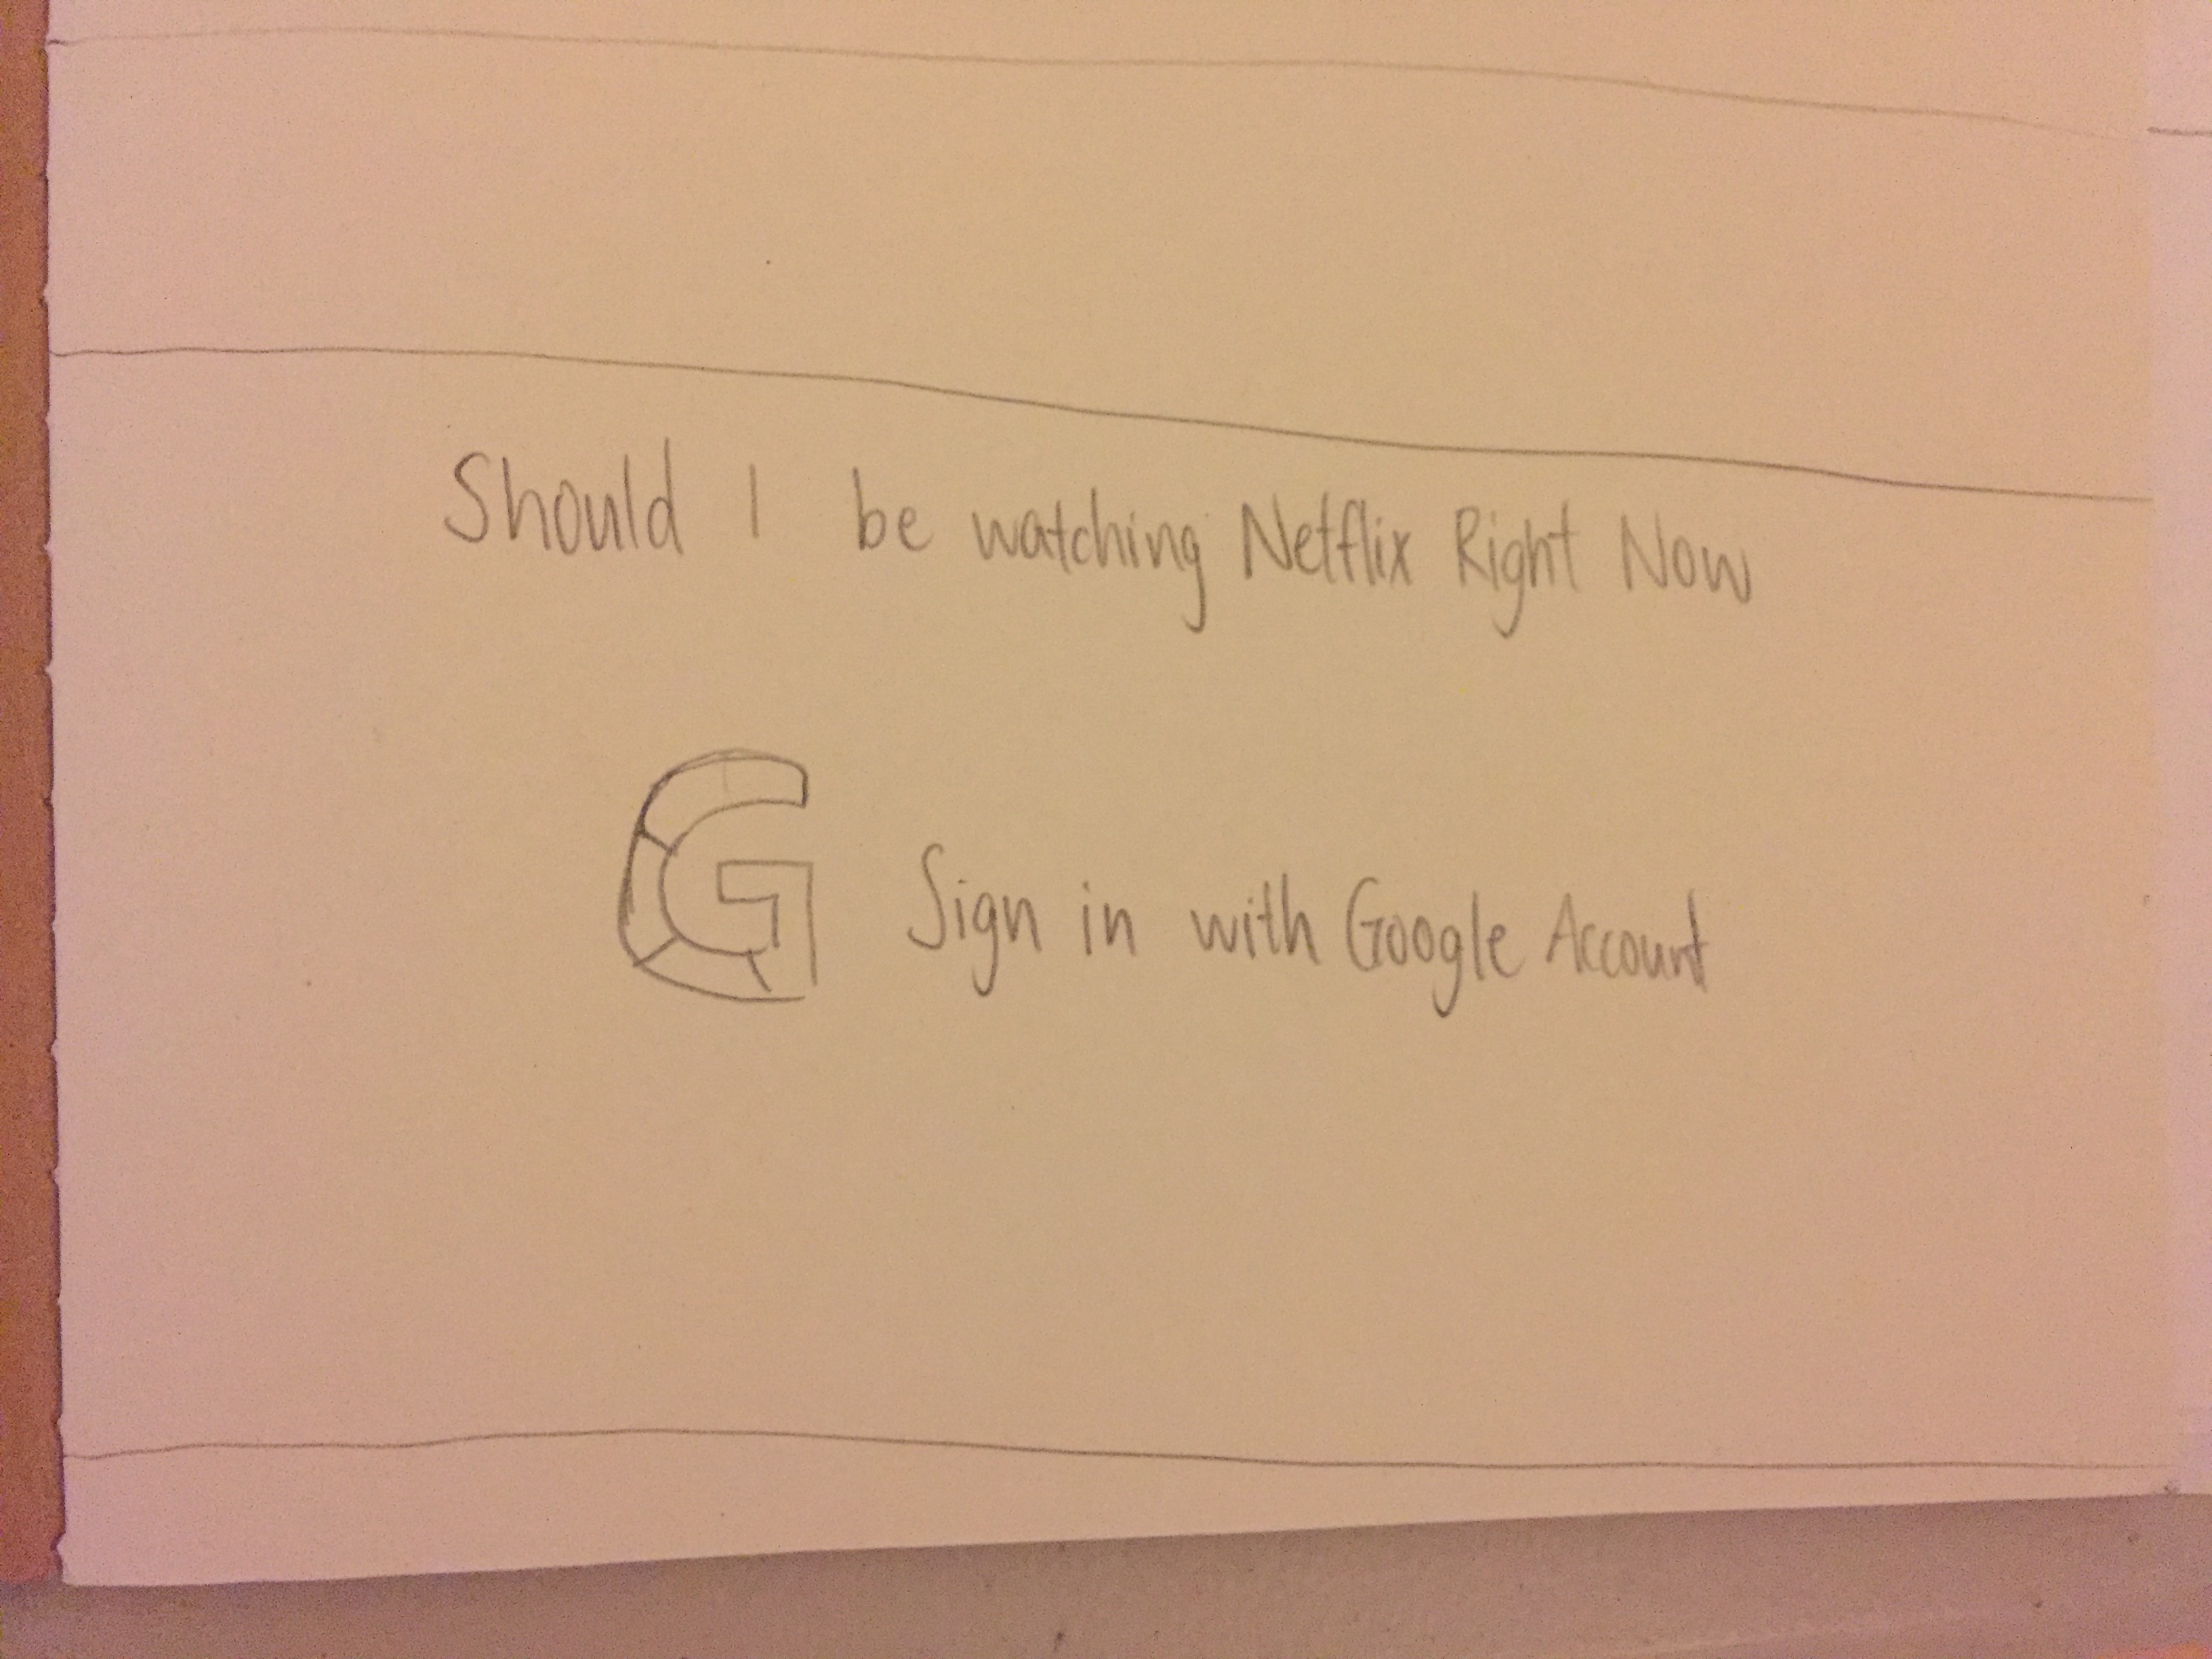 Should I be watching Netflix Right Now
G Sign in with Google Account